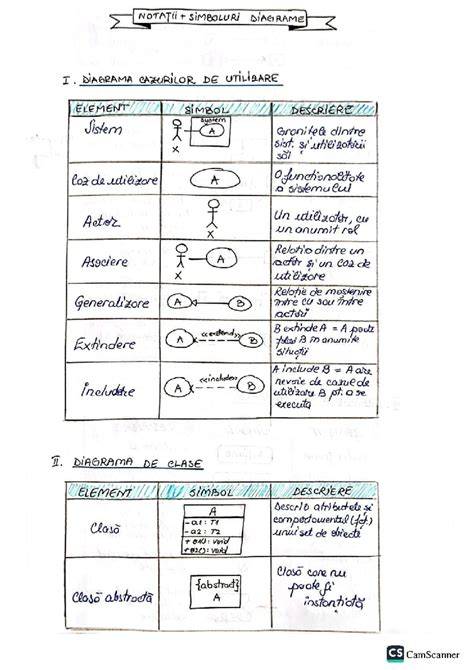 NOTAȚII + SIMBOLURI DIAGRAME
I. DIAGRAMA CAZURILOR DE UTILIZARE
ELEMENT SIMBOL DESCRIERE
Sistem
sistem
A
X
Granițele dintre
sist. și utilizatorii
săi
Caz de utilizare
A
O funcționalitate
a sistemului
Actor
X
Un utilizator, cu
un anumit rol
Asociere
A
X
Relația dintre un
actor și un caz de
utilizare
Generalizare
A B
Relație de moștenire
între CU sau între
actori
Extindere
A <<extend>> B
B extinde A = A poate
B în anumite
situații
Includere
A <<include>> B
A include B = A are
nevoie de cazul de
utilizare B pt. a se
executa
II. DIAGRAMA DE CLASE
ELEMENT SIMBOL DESCRIERE
Clasă
A
- a1 : T1
- a2 : T2
+ o1() : void
+ o2() : void
Descrie atributele și
comportamentul (fct.)
unui set de obiecte
Clasă abstractă
{abstract}
A
Clasă care nu
poate fi
instanțiată
CS CamScanner